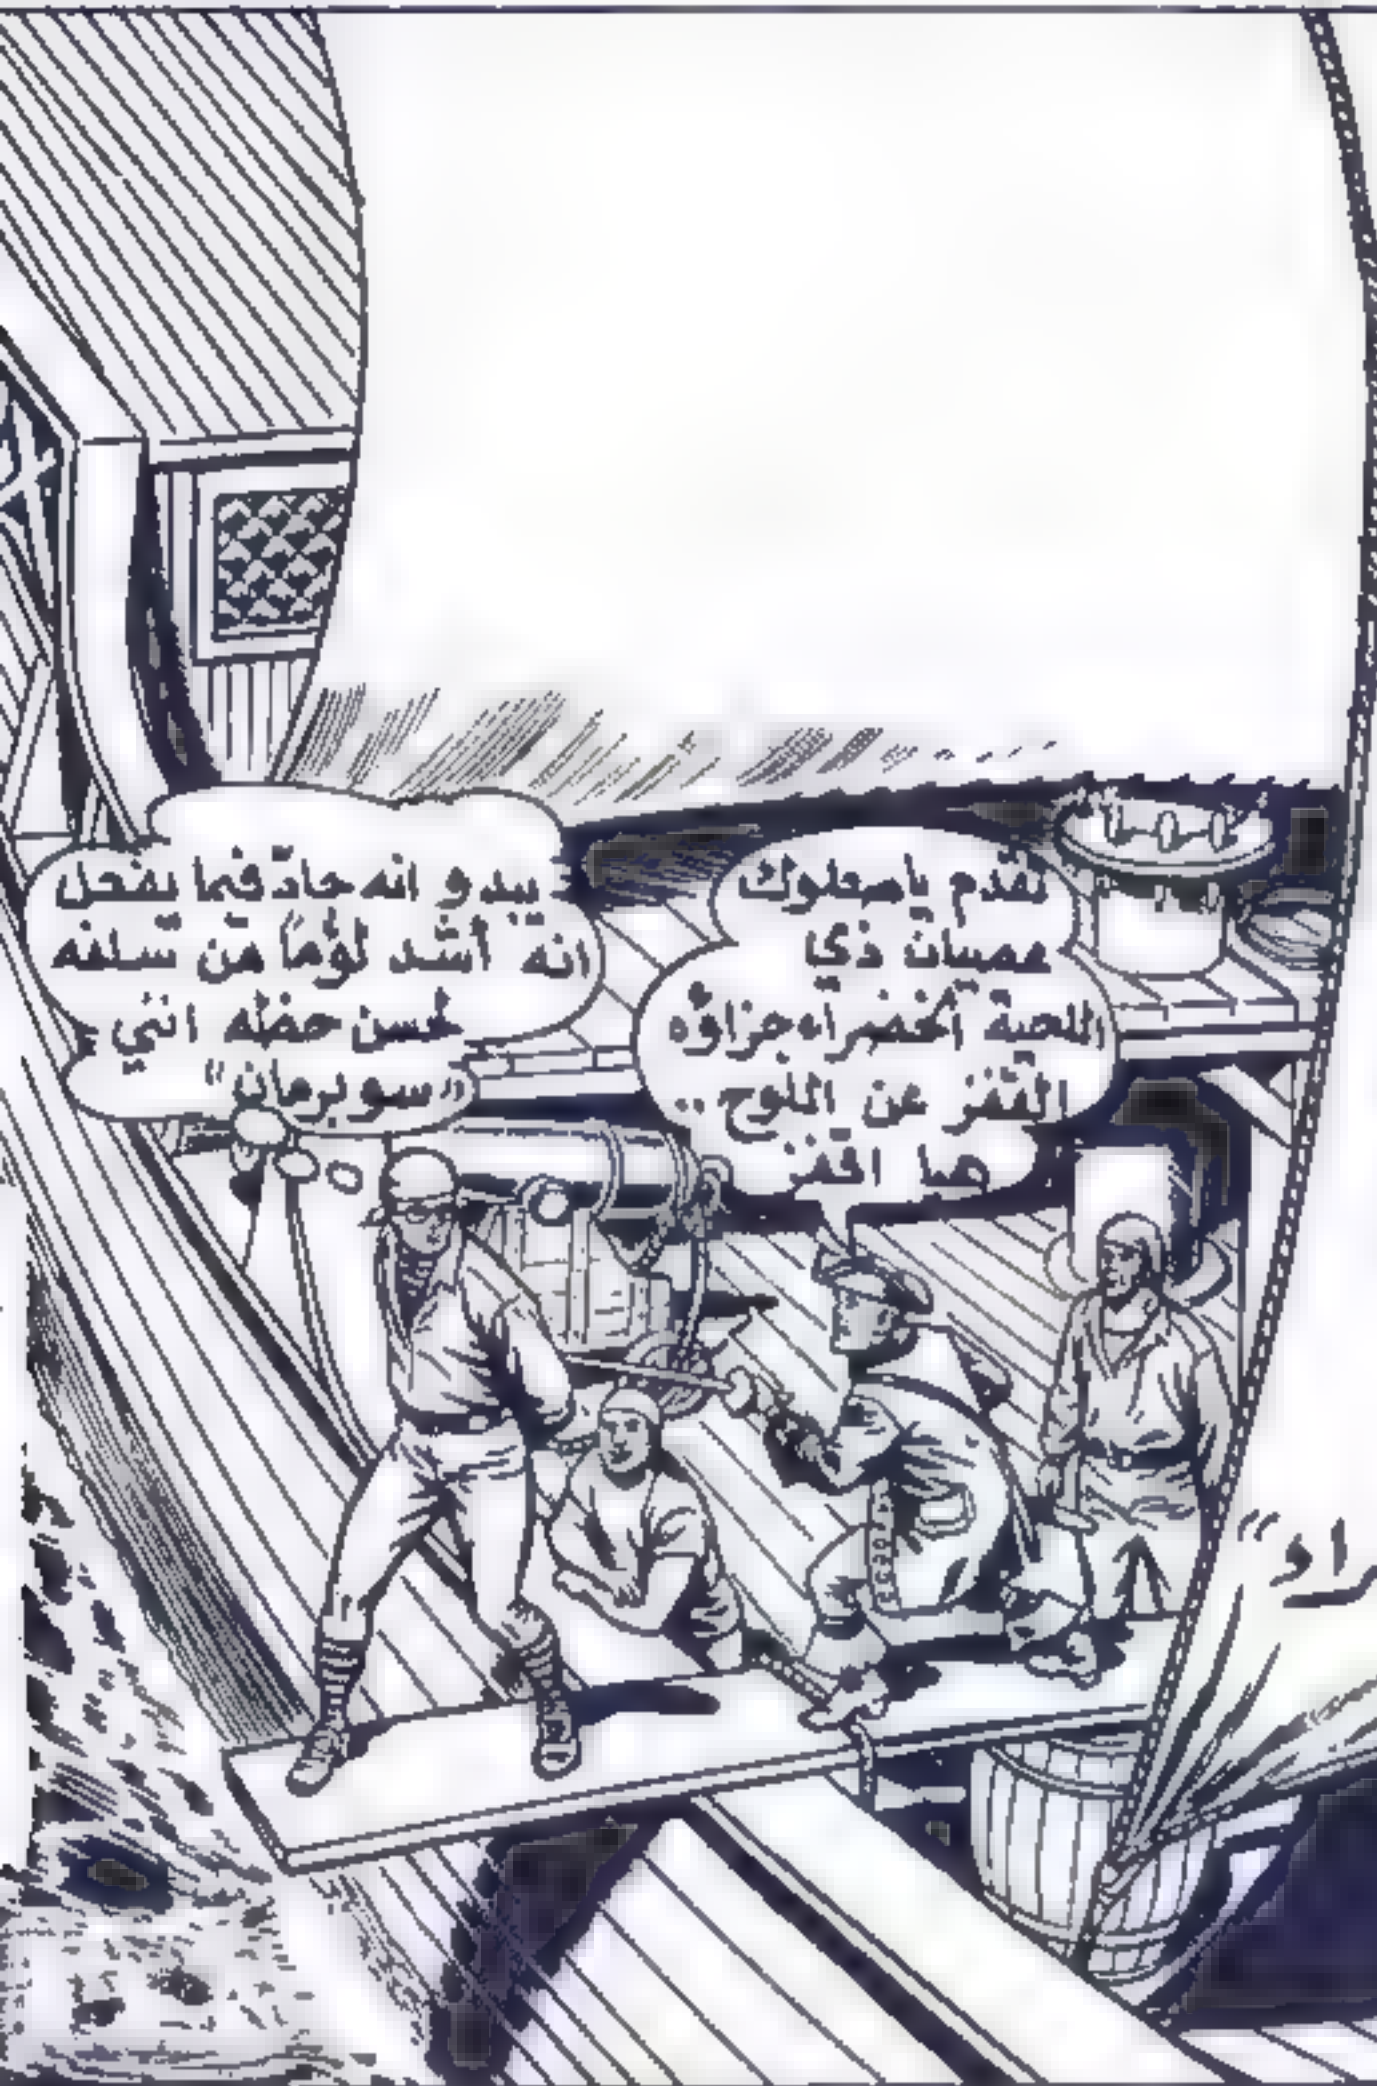 تقدم ياصعلوك
عصيان ذي
اللحية الخضراء جزاؤه
القفز عن اللوح ..
هيا اقفز
يبدو انه جادّ فيما يفعل
انه أشد لؤماً من سلفه
لحسن حظه انني
"سوبرمان"